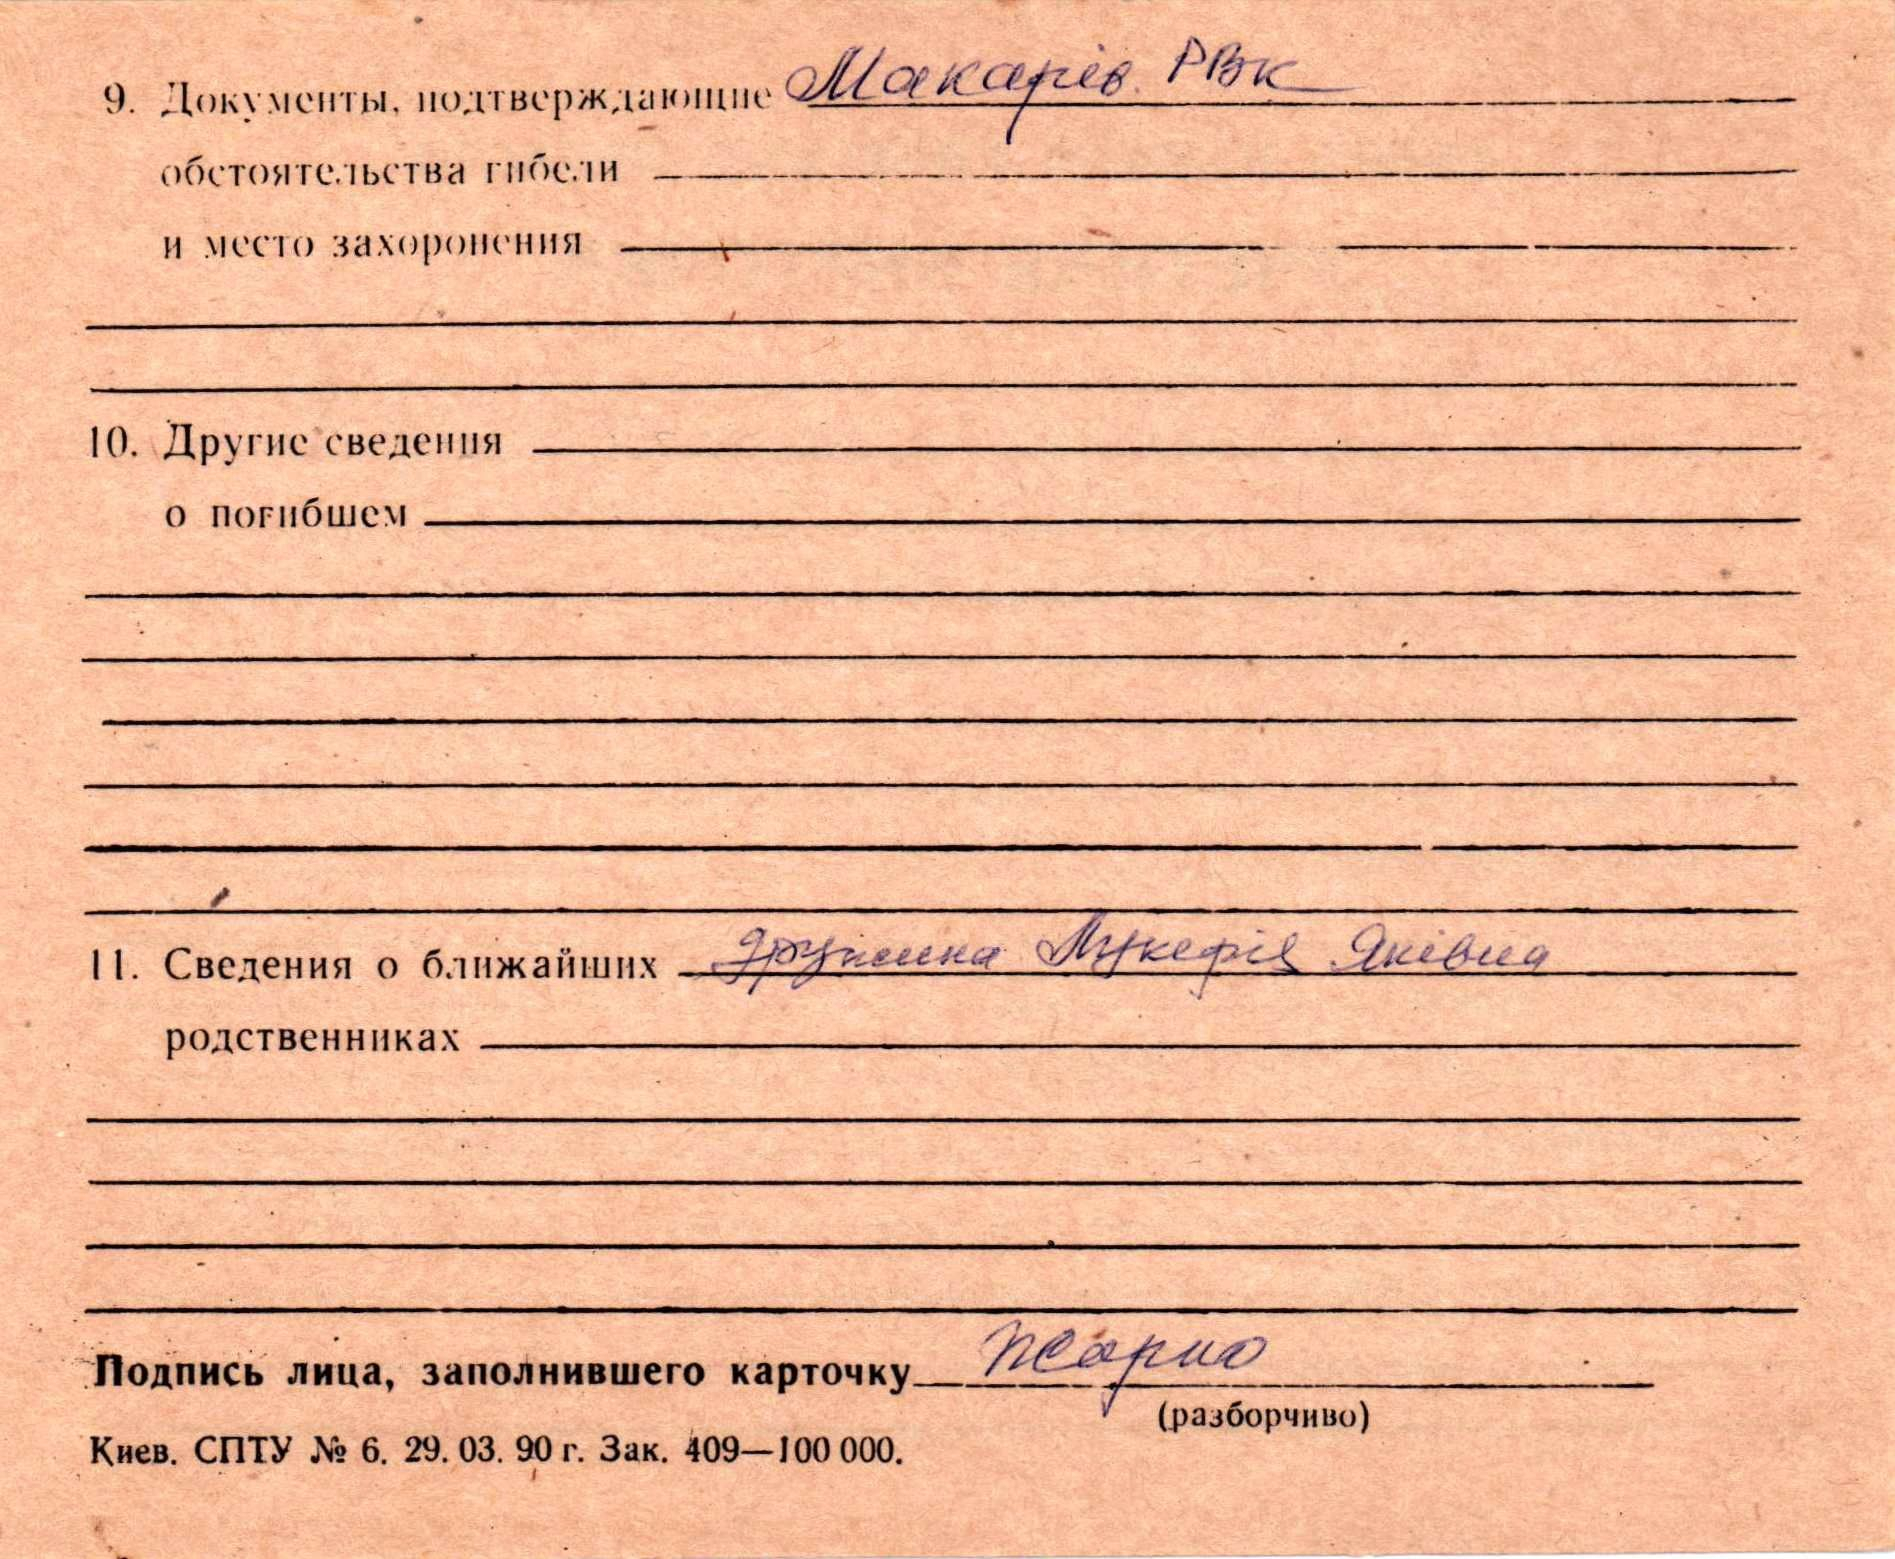 9. Документы, подтверждающие Макарів. РВК
обстоятельства гибели
и место захоронения
10. Другие сведения
о погибшем
11. Сведения о ближайших дружина Лукерія Яківна
родственниках
Подпись лица, заполнившего карточку
(разборчиво)
Киев. СПТУ № 6. 29. 03. 90 г. Зак. 409—100 000.